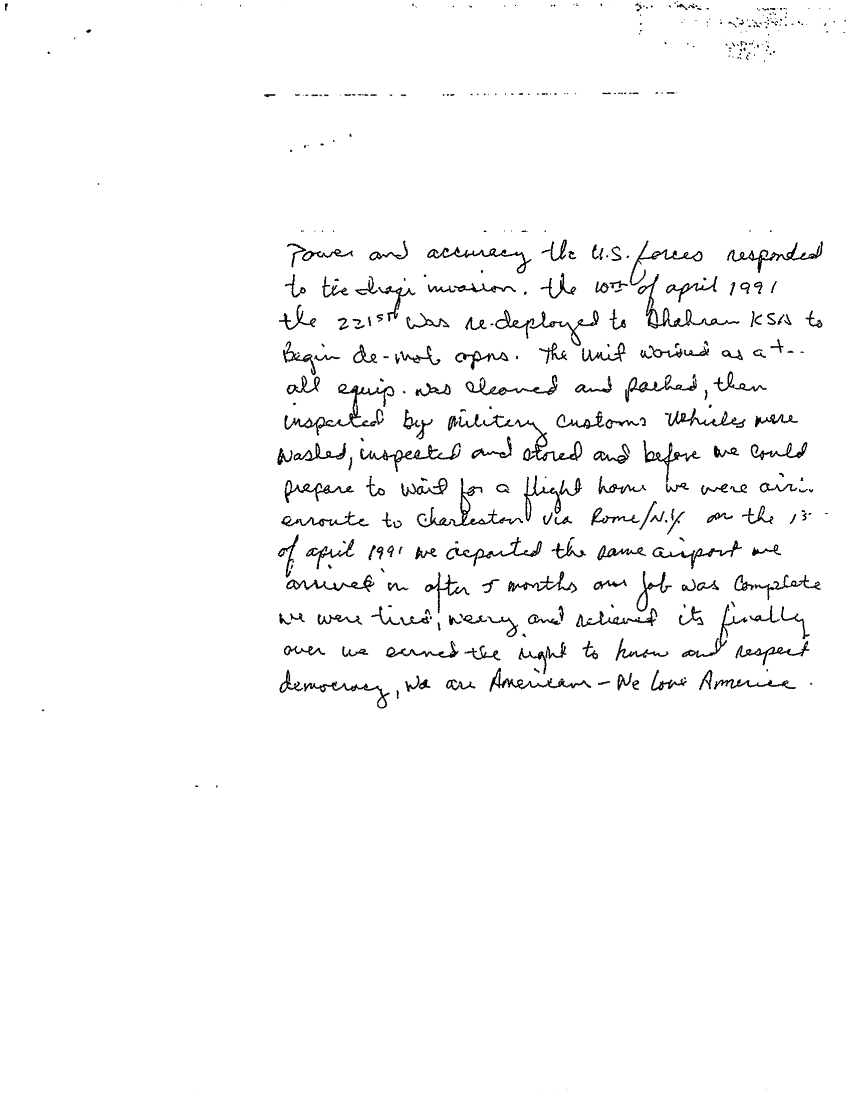 Power and accuracy the U.S. forces responded
to the Iraqi invasion. the 10th of april 1991
the 221st was re-deployed to Dhahran KSA to
Begin de-mob opns. The unit worked as a
all equip. was cleaned and packed, then
inspected by military customs Vehicles were
washed, inspected and stored and before we could
prepare to wait for a flight home we were
enroute to Charleston via Rome/N.Y. on the
of april 1991 we departed the same airport we
arrived in after 5 months our job was complete
we were tired, weary and relieved its finally
over we earned the right to know and respect
democracy, we are American - We love America.